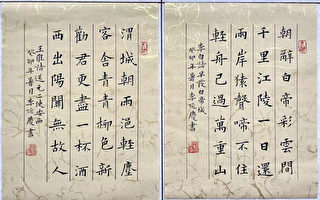 朝辭白帝彩雲間
千里江陵一日還
兩岸猿聲啼不住
輕舟已過萬重山
李白詩早發白帝城
癸卯年暑月李慶書
渭城朝雨浥輕塵
客舍青青柳色新
勸君更盡一杯酒
西出陽關無故人
王維詩送元二使安西
癸卯年暑月李慶書